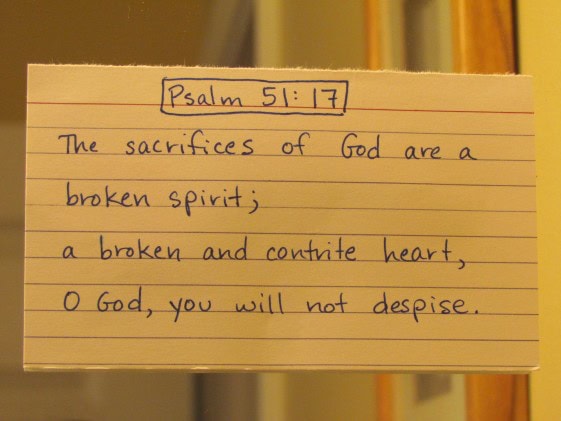 Psalm 51:17
The sacrifices of God are a
broken spirit;
a broken and contrite heart,
O God, you will not despise.